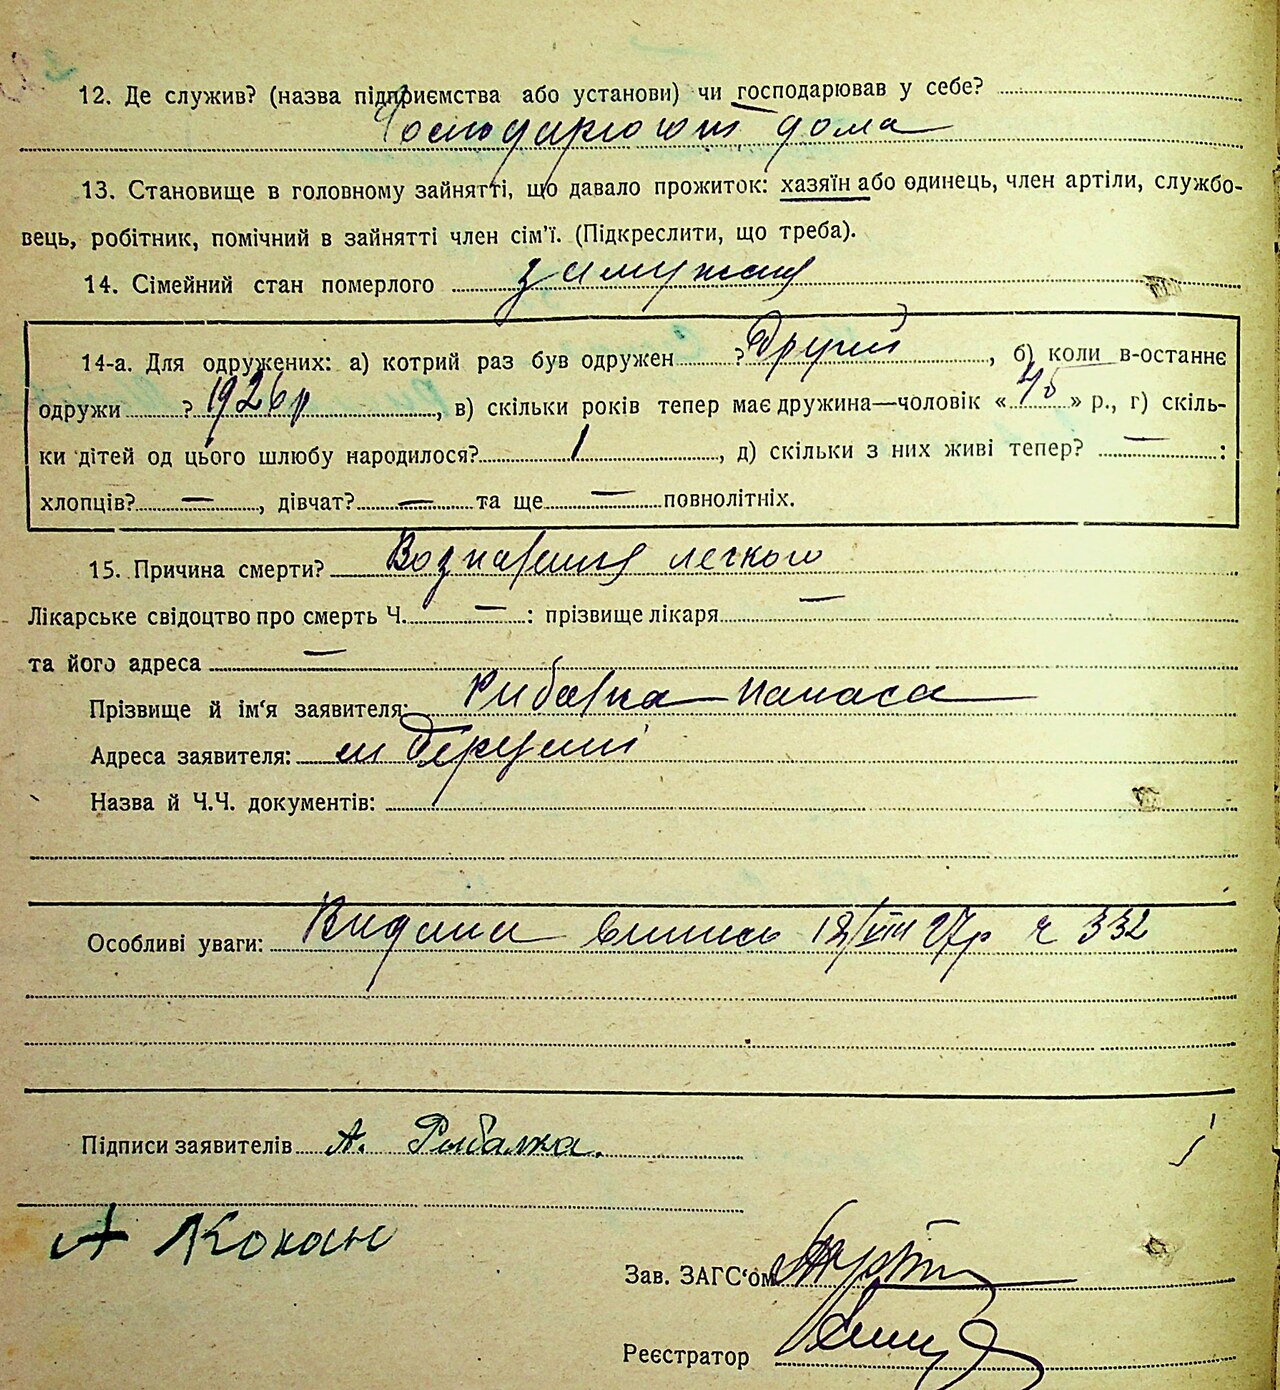 12. Де служив? (назва підприємства або установи) чи господарював у себе?
Господарює дома
13. Становище в головному зайнятті, що давало прожиток: хазяїн або одинець, член артіли, службо-
вець, робітник, помічний в зайнятті член сім'ї. (Підкреслити, що треба).
14. Сімейний стан померлого замужня
14-а. Для одружених: а) котрий раз був одружен ? Другий, б) коли в-останнє
одружи ? 1926 р, в) скільки років тепер має дружина—чоловік « » р., г) скіль-
ки дітей од цього шлюбу народилося? 1, д) скільки з них живі тепер? — :
хлопців? —, дівчат? — та ще — повнолітніх.
15. Причина смерти? легкого
Лікарське свідоцтво про смерть Ч. — : прізвище лікаря —
та його адреса —
Прізвище й ім'я заявителя: Рибалка Панаса
Адреса заявителя: м
Назва й Ч.Ч. документів:
Особливі уваги: Видали випись 18/VIII 27р ч 332
Підписи заявителів А. Рибалка.
А Кохан
Зав. ЗАГС'ом
Реєстратор